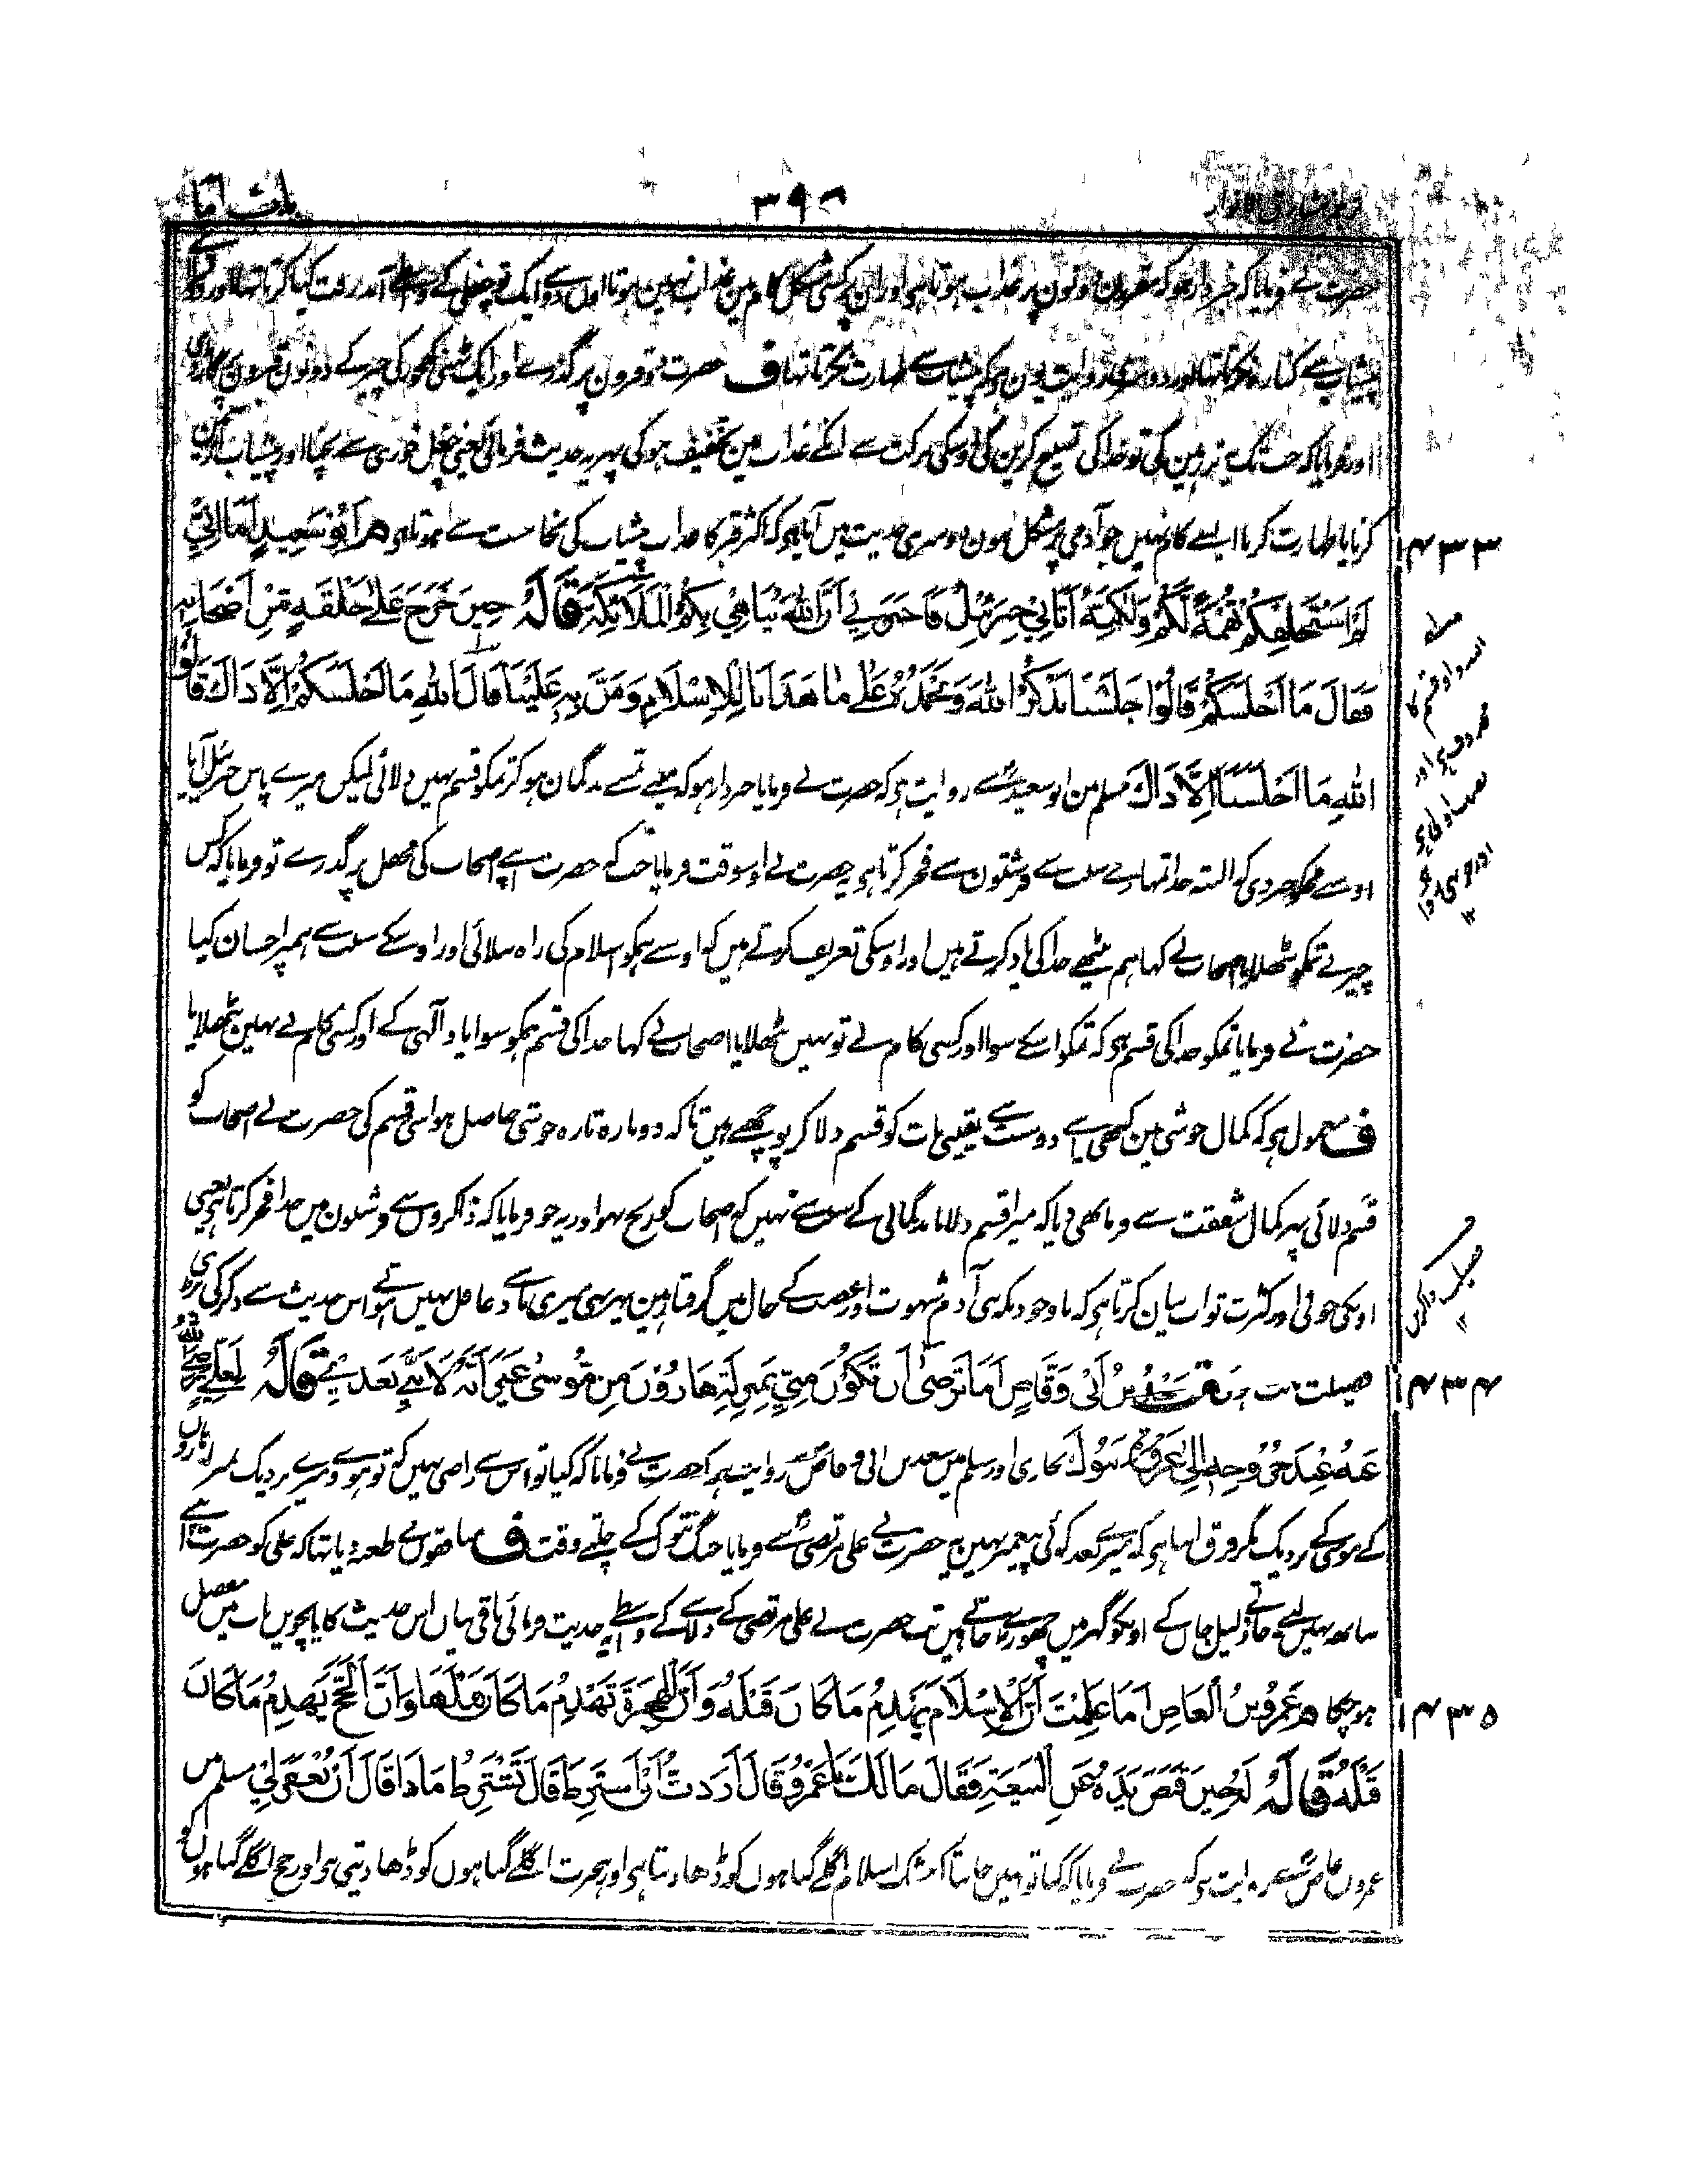 باب اما
۳۹۸
حضرت نے فرمایا کہ خبردار ہو کہ مقرر ان دونوں پر عذاب ہوتا ہی اور ان پر کسی مشکل کام مین عذاب نہین ہوتا اون سے دو ایک تو چغلی کے واسطے آمد رفت کیا کرتا تہا اور
پیشاب سے کنارہ نکرتا تہا اور دوسری روایت یون ہی کہ پیشاب سے طہارت نکرتا تہا ف حضرت دو قبرون پر گذرے اور ایک ٹہنی کھجور کی چیر کے دونون قبرون پر
اور فرمایا کہ جب تک یہ تر رہین گی تو خدا کی تسبیح کرین گی اوسکی برکت سے انکے عذاب مین تخفیف ہوگی پہر یہ حدیث فرمائی یعنی چغل خوری سے بچنا اور پیشاب
کرنا یا طہارت کرنا ایسے کام نہیں جو آدمی پر مشکل ہون دوسری حدیث میں آیا ہی کہ اکثر قبر کا عذاب پیشاب کی نجاست سے ہوتا ہی م اَبُو سَعِیدٍ اَمَا اِنِّی
۱۴۳۳
لَمْ اَسْتَحْلِفْكُمْ تُهْمَةً لَّكُمْ وَلٰكِنَّهُ اَتَانِيْ جِبْرَئِيْلُ فَاَخْبَرَنِيْ اَنَّ اللّٰهَ يُبَاهِيْ بِكُمُ الْمَلَائِكَةَ قَالَهُ حِيْنَ خَرَجَ عَلٰى حَلْقَةٍ مِّنْ اَصْحَابِهِ
فَقَالَ مَا اَجْلَسَكُمْ قَالُوْا جَلَسْنَا نَذْكُرُ اللّٰهَ وَنَحْمَدُهُ عَلٰى مَا هَدَانَا لِلْاِسْلَامِ وَمَنَّ بِهِ عَلَيْنَا قَالَ اللّٰهِ مَا اَجْلَسَكُمْ اِلَّا ذَاكَ قَالُوْا
اللّٰهِ مَا اَجْلَسَنَا اِلَّا ذَاكَ مسلم مین ابو سعیدؓ سے روایت ہی کہ حضرت نے فرمایا خبردار ہو کہ مینے تمسے بدگمان ہو کر تمکو قسم نہیں دلائی لیکن میرے پاس جبرئیل آیا
اوسے مجھکو خبر دی کہ البتہ خدا تمہارے سبب سے فرشتون سے فخر کرتا ہی یہ حضرت نے اوسوقت فرمایا جب کہ حضرت اپنے اصحاب کی محفل پر گذرے تو فرمایا کہ کس
چیز نے تمکو بٹھلایا اصحاب نے کہا ہم بیٹھے خدا کی یاد کرتے ہیں اور اوسکی تعریف کرتے ہیں کہ اوسے ہمکو اسلام کی راہ بتلائی اور اوسکے سبب سے ہمپر احسان کیا
حضرت نے فرمایا تمکو خدا کی قسم ہی کہ تمکو اسکے سوا اور کسی کام نے تو نہیں بٹھلایا اصحاب نے کہا خدا کی قسم ہمکو سوا یاد الٰہی کے اور کسی کام نے نہین بٹھلایا
ف معمول ہی کہ کمال خوشی مین کبھی اپنے دوست سے یقینی بات کو قسم دلا کر پوچھتے ہیں تاکہ دوبارہ تازہ خوشی حاصل ہو اسی قسم کی حضرت نے اصحاب کو
قسم دلائی پہر کمال شفقت سے فرما بھی دیا کہ میرا قسم دلانا بدگمانی کے سبب سے نہیں کہ اصحاب کو رنج نہو اور یہ جو فرمایا کہ ذاکرون سے فرشتون میں خدا فخر کرتا ہی یعنی
اونکی خوبی اور کثرت ثواب بیان کرتا ہی کہ باوجودیکہ بنی آدم شہوت اور غضب کے جال میں گرفتار ہین پہر بھی میری یاد سے غافل نہیں ہوتے اس حدیث سے ذکر کی بڑی
فضیلت ثابت ہوئی ق سَعْدُ بْنُ اَبِيْ وَقَّاصٍ اَمَا تَرْضٰى اَنْ تَكُوْنَ مِنِّيْ بِمَنْزِلَةِ هَارُوْنَ مِنْ مُوْسٰى غَيْرَ اَنَّهُ لَا نَبِيَّ بَعْدِيْ قَالَهُ لِعَلِيٍّ رضی اللہ
۱۴۳۴
عَنْهُ عِنْدَ خُرُوْجِهِ اِلٰى غَزْوَةِ تَبُوْكَ بخاری اور مسلم میں سعد بن ابی وقاصؓ سے روایت ہی کہ حضرت نے فرمایا کہ کیا تو اس سے راضی نہیں کہ تو ہووے میرے نزدیک بمنزلہ ہارون
کے موسیٰ کے نزدیک مگر فرق اتنا ہی کہ میرے بعد کوئی پیغمبر نہین یہ حضرت نے علی مرتضیٰ سے فرمایا جنگ تبوک کے چلتے وقت ف منافقون نے طعنہ دیا تہا کہ علی کو حضرت اپنے
ساتھ نہیں لیے جاتے ذلیل جان کے اونکو گھر میں چھوڑے جاتے ہین تب حضرت نے علی مرتضیٰ کے دلاسے کے واسطے یہ حدیث فرمائی باقی بیان اس حدیث کا پانچویں باب میں مفصل
ہو چکا م عَمْرُو بْنُ الْعَاصِ اَمَا عَلِمْتَ اَنَّ الْاِسْلَامَ يَهْدِمُ مَا كَانَ قَبْلَهُ وَاَنَّ الْهِجْرَةَ تَهْدِمُ مَا كَانَ قَبْلَهَا وَاَنَّ الْحَجَّ يَهْدِمُ مَا كَانَ
۱۴۳۵
قَبْلَهُ قَالَهُ لَهُ حِيْنَ قَبَضَ يَدَهُ عَنِ الْبَيْعَةِ فَقَالَ مَا لَكَ يَا عَمْرُو قَالَ اَرَدْتُ اَنْ اَشْتَرِطَ قَالَ تَشْتَرِطُ مَاذَا قَالَ اَنْ يُغْفَرَ لِيْ مسلم میں
عمرو بن عاصؓ سے روایت ہی کہ حضرت نے فرمایا کہ کیا تو نہیں جانتا کہ بیشک اسلام اگلے گناہوں کو ڈھا دیتا ہی اور ہجرت اگلے گناہوں کو ڈھا دیتی ہی اور حج اگلے گناہوں کو